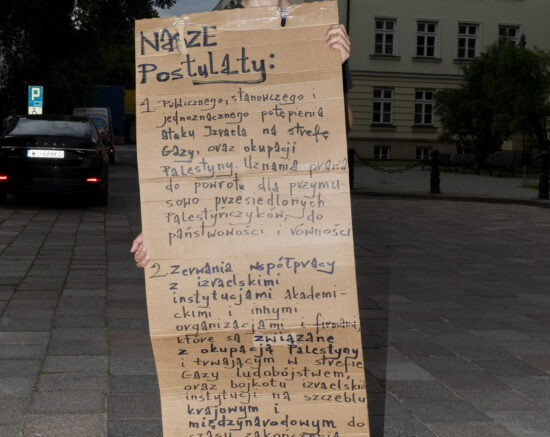 NASZE
Postulaty:
1. Publicznego, stanowczego i
jednoznacznego potępienia
ataku Izraela na strefę
Gazy, oraz okupacji
Palestyny. Uznania prawa
do powrotu dla przymu-
sowo przesiedlonych
Palestyńczyków, do
państwowości i równości
2. Zerwania współpracy
z izraelskimi
instytucjami akademi-
ckimi i innymi
organizacjami i firmami,
które są związane
z okupacją Palestyny
i trwającym w strefie
Gazy ludobójstwem,
oraz bojkotu izraelskich
instytucji na szczeblu
krajowym i
międzynarodowym do
czasu zakończenia
P